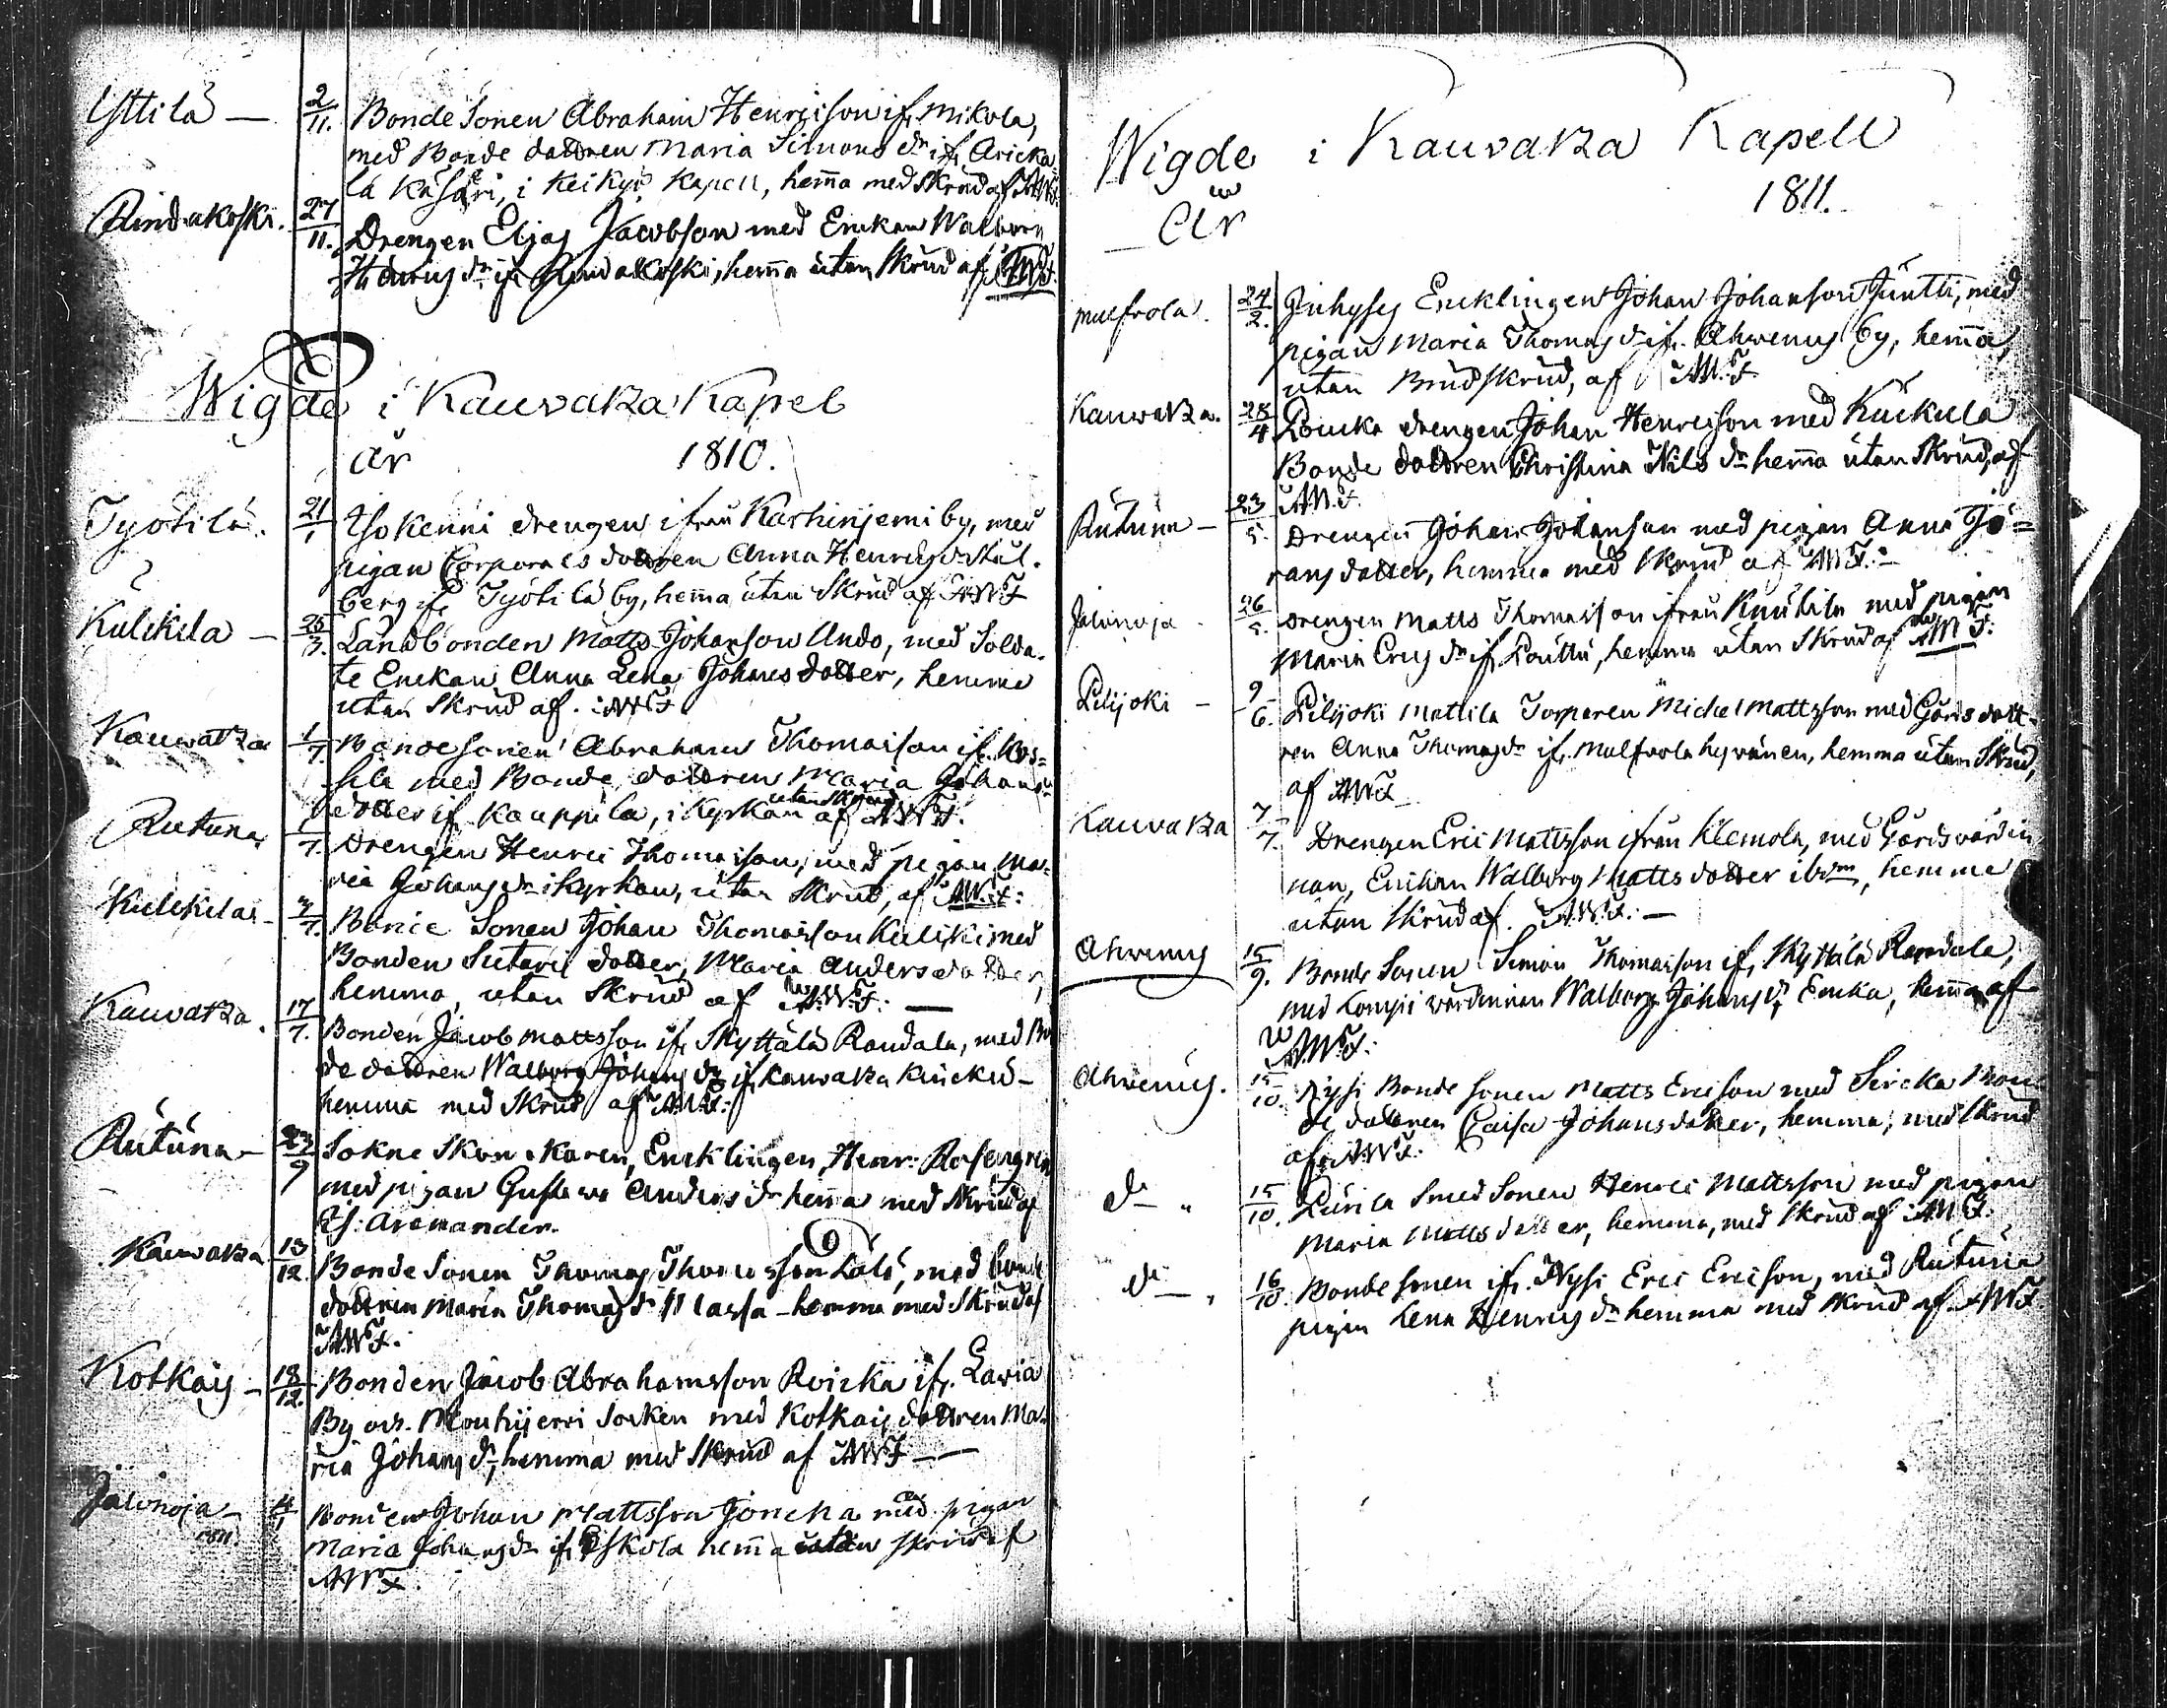 Yttilä — 2/11. Bonde Sonen Abraham Henricsson ifr. Mikola,
med Bonde dottren Maria Simons dr ifr. Aricka
la Käsäri, i Keikyö Kapell, hemma med Skrud af
Rindakoski. 27/11. Drengen Eljas Jacobson med Enckan Walborg
Henrics dr ifr. Rindakoski, hemma utan Skrud af
Wigde i Kauvatza Kapel
år 1810.
Työtilä. 21/1 Isokenni drengen ifrån Karhiniemi by, med
pigan Corporals dottren Anna Henrics dr Stål.
berg ifr. Työtilä by, hemma utan Skrud af AWT
Kulckila — 25/3. Landbonden Matts Johansson Undo, med Solda.
te Enckan Anna Lena Johans dotter, hemma
utan Skrud af. AWT
Kauvatza 1/7. Bondesonen Abraham Thomasson ifr.
med Bonde dottren Maria Johans
dotter ifr Kauppila, i Kyrkan utan Skrud af AWT.
Rutuna 1/7. Drengen Henric Thomasson, med pigan Ma-
ria Johans dr i Kyrkan, utan Skrud, af AWT:
Kulckila — 7/7. Bonde Sonen Johan Thomasson Kulcki med
Bonden Sutaris dotter, Maria Anders dotter,
hemma, utan Skrud af AWT: —
Kauvatza. 17/7. Bonden Jacob Mattsson ifr. Skyttälä Randala, med Bon
de dottren Walborg Johans dr ifr. Kauvatza
hemma med Skrud af AWT:
Rutuna — 23/9 Sokne Skomakaren, Encklingen, Henr: Rosengren
med pigan Gustava Anders dr hemma med Skrud af
Arenander.
Kauvatza 13/12. Bonde Sonen Thomas Thomasson med bonde
dottren Maria Thomas dr hemma med Skrud af
AWT.
Kotkais — 18/12. Bonden Jacob Abrahamsson Roicka ifr. Lavia
By och Mouhijerri Socken med Kotkais dottren Ma.
ria Johans dr, hemma med Skrud af AWT —
Jalonoja — 1811. 4/1 Bonden Johan Mattsson med pigan
Maria Johans dr ifr. Eskola hemma utan skrud af
AWT.
Wigde i Kauvatza Kapell
År 1811.
24/2. Inhyses Encklingen Johan Johansson Juntti, med
pigan Maria Thomas dr ifr. Ahwenus by, hemma,
utan Brudskrud, af AWT
Kauvatza. 28/4 drengen Johan Henricsson med Kuckula
Bonde dottren Christina Nils dr hemma utan Skrud, af
AWT.
Rutuna — 23/5. Drengen Johan Johansson med pigan Anna Jö=
rans dotter, hemma med Skrud af AWT. —
Jalonoja. 26/5. Drengen Matts Thomasson ifrån Knutila med pigan
Maria Erics dr ifr. Louttu, hemma utan Skrud af AWT.
Pilijoki — 9/6. Pilijoki Mattila Torparen Michel Mattsson med Gårds dott-
ren Anna Thomas dr ifr. hemma utan Skrud,
af AWT
Kauvatza 7/7. Drengen Eric Mattsson ifrån Klemola, med Gårds värdin
nan, Enckan Walborg Matts dotter ibdm, hemma
utan Skrud af. AWT. —
Ahvenus 15/9. Bonde Sonen Simon Thomasson ifr. Skyttälä Randala,
med Lompi värdinnan Walborg Johans dr, Encka, hemma af
AWT.
Ahvenus. 15/10. Nysi Bonde sonen Matts Ericson med Sircka Bon
de dottren Caisa Johans dotter, hemma, med Skrud
af AWT.
do „ 15/10. Smed Sonen Henric Mattsson med pigan
Maria Matts dotter, hemma, med Skrud af AWT.
do — „ 16/10. Bonde sonen ifr. Nysi Eric Ericson, med Rutuna
pigan Lena Henrics dr hemma med Skrud af AWT